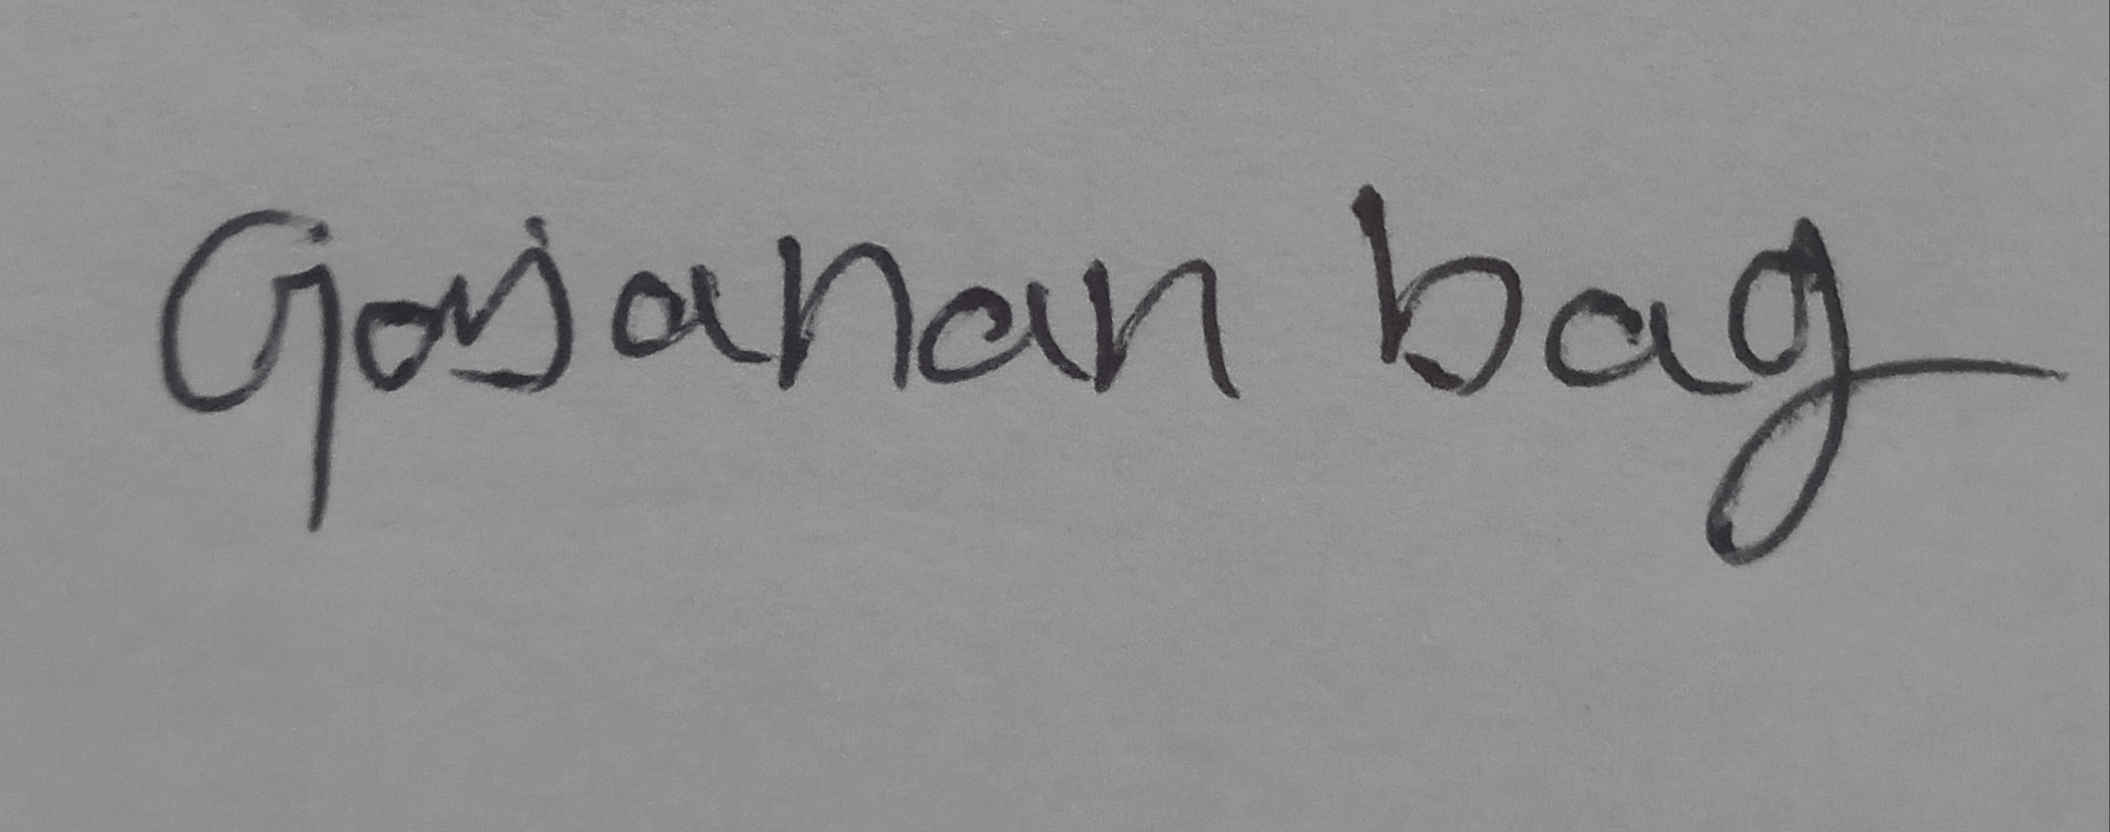 Gajanan bag